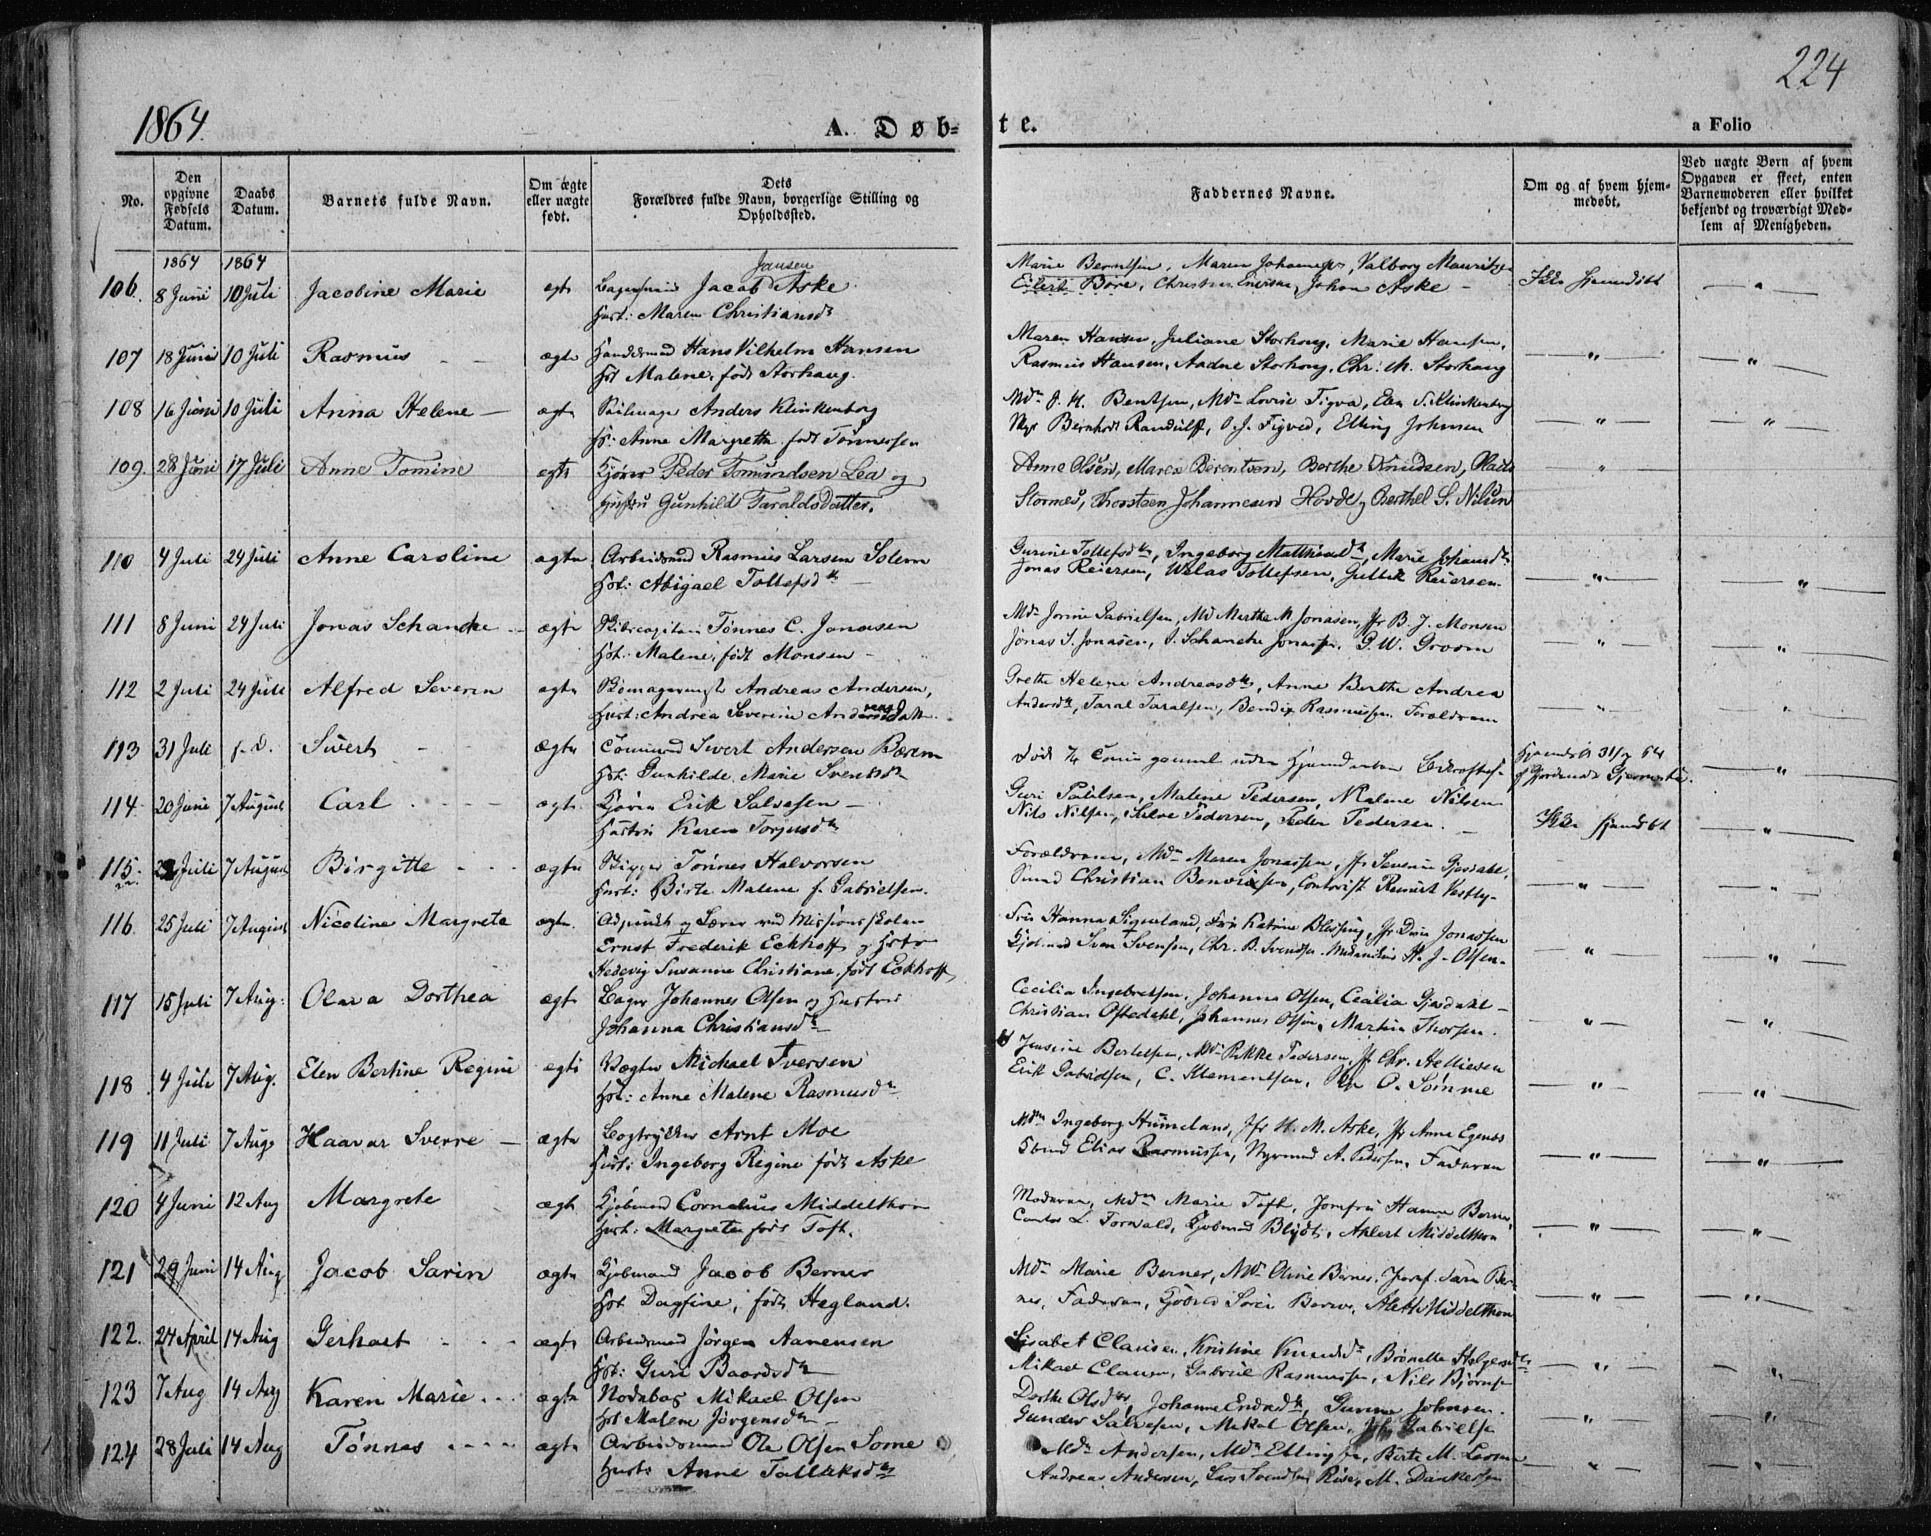 224
1864.
A. Døb-
te.
a Folio
No.
Den opgivne Fødsels Datum.
Daabs Datum.
Barnets fulde Navn.
Om ægte eller uægte født.
Dets Forældres fulde Navn, borgerlige Stilling og Opholdssted.
Faddernes Navne.
Om og af hvem hjemmedøbt.
Ved uægte Børn af hvem Opgaven er skeet, enten Barnemoderen eller hvilket bekjendt og troværdigt Medlem af Menigheden.
1864 1864
Jansen
106. 8 Juni 10 Juli Jacobine Marie ægte Jacob Aske
Hust: Maren Christiansdr
Marie Berntsen, Maren Johannesen, Valborg Mauritz
Eilert Bore, Christian Eneisen, Johan Aske - Ikke hjemdøbt
107 18 Juni 10 Juli Rasmus ægte Hans Vilhelm Hansen
Hst Malene, født Storhaug.
Maren Hansen, Juliane Storhoug, Marie Hansen,
Rasmus Hansen, Aadne Storhoug, Chr: M. Storhaug
108 16 Juni 10 Juli Anna Helene - ægte Seilmager Anders Klinkenborg
H: Anne Margrethe født Tønnessen
Mdm J. H. Bentsen, Mdm Lovise Figved, Elen S. Klinkenborg
Bernhard Randulff, O. J. Figved, Elling Johnsen
109. 28 Juni 17 Juli Anne Tomine ægte Kjører Peder Tomundsen Lea og
Hustru Gunhild Taraldsdatter.
Anne Olsen, Maren Berentsen, Berthe Knudsen, Olaus
Stornes, Thorsteen Johannesen Hovde, Berthel S. Nilsen
110 4 Juli 24 Juli Anne Caroline ægte Arbeidsmd Rasmus Larsen Solem
Hst: Abigael Tollefsdtr -
Gurine Tollefsdtr, Ingeborg Matthisdtr, Marie Johansdtr
Jonas Reiersen, Wilas Tollefsen, Gullik Reiersen.
111 8 Juni 24 Juli Jonas Schancke ægte Skibscapitain Tønnes C. Jonasen
Hst: Malene, født Monsen -
Mdm Jonine Gabrielsen, Md Marthe M Jonasen, Jfr B. J. Monsen
Jonas S. Jonasen, S. Schancke Jonasen, G. W. Groom
112 2 Juli 24 Juli Alfred Severin ægte Skomagersvend Andreas Andersen,
Hust: Andrea Severine Andersdatt.
Grethe Helene Andreasdtr, Anne Berthe Andrea
Andersdtr, Taral Taralsen, Bendix Rasmussen, Forældrene
113 31 Juli s. D. Sivert - - ægte Sivert Andersen Bærem
Hst: Gunhilde Marie Svensdtr
Død 1/4 Time gammel
Hjemdøbt 31/7 64
af Jordemoder
114. 20 Juni 7 August Carl - - - - ægte Kjører Erik Salvesen -
Hustru Karen Torjusdtr
Guri Paulsen, Malene Pedersen, Malene Nilsen
Nils Nilsen, Salve Pedersen, Peder Pedersen. - Ikke hjemdøbt
115. Juli 7 August Birgitte - - - ægte Skipper Tønnes Halvorsen
Hust: Birte Malene f. Gabrielsen.
Forældrene, Mdm Maren Jonassen, Jfr Severine Gjesdahl.
Smed Christian Bendixsen, Contorist Reinert Vestly-
116. 25 Juli 7 August Nicoline Margrete ægte. Adjunkt og Lærer ved Missionsskolen
Ernst Frederik Eckhoff og Hstr
Hedevig Susanne Christiane, født Eckhoff
Frk Hanna Sigveland, Frk Katrine Blessing, Jfr Dina Jonassen
Kjøbmd Sven Svensen, Chr. B. Svendsen, H. J. Olsen.
117 15 Juli 7 Aug: Olava Dorthea ægte Bager Johannes Olsen og Hustru
Johanna Christiansdtr
Cecilia Ingebretsen, Johanna Olsen, Cecilia Gjesdahl -
Christian Oftedahl, Johannes Olsen, Martin Thorsen.
118. 4 Juli 7 Aug. Elen Bertine Regine ægte Vægter Michael Iversen
Hst: Anne Malene Rasmusdtr
Jensine Bertelsen, Mdm Rikke Pedersen, Jfr Chr. Helliesen
Erik Gabrielsen, C. Klementsen, O. Sømme
119 11 Juli 7 Aug Haavar Sverre - ægte Bogtrykker Arnt Moe
Hust: Ingeborg Regine født Aske
Mdm Ingeborg Hummeland, Jfr H. M. Aske, Jfr Anne Egenes
Elias Rasmussen, Styrmd A. Pedersen, Faderen
120 4 Juni 12 Aug Margrete ægte Kjøbmd Cornelius Middelthon
Hust: Margrete født Toft.
Moderen, Mdm Marie Toft, Jomfru Hanne Berner,
Cantor L. Torvald, Kjøbmd Blydt, Ahlert Middelthon
121 29 Juni 14 Aug Jacob Sarin ægte Kjøbmand Jacob Berner
Hst. Dagfine, født Hegland.
Mdm Marie Berner, Mdm Oline Berner, Jomf. Sara Ber-
ner, Faderen, Søren Berner, Alert Middelthon
122. 24 April 14 Aug Gerhart - - - ægte Arbeidsmd Jørgen Aanensen
Hst: Guri Baardsdtr
Lisabet Clausen, Kristine Knudsdtr, Brønette Helgesdtr
Mikael Clausen, Gabriel Rasmussen, Nils Bjørnsen
123 7 Aug 14 Aug Karen Marie - - ægte Nodebas Mikael Olsen
Hst Malene Jørgensdtr -
Dorthe Olsdtr, Johanne Endresdtr, Gurine Johnsen.
Gunder Salvesen, Mikal Olsen, Gabrielsen
124 28 Juli 14 Aug Tønnes - - - - ægte Arbeidsmand Ole Olsen Some
Hustr Anne Tollaksdtr
Mdm Andersen, Mdm Ellingsen, Berte M. Larsen
Andreas Andersen, Lars Svendsen Rise, M. Danielsen